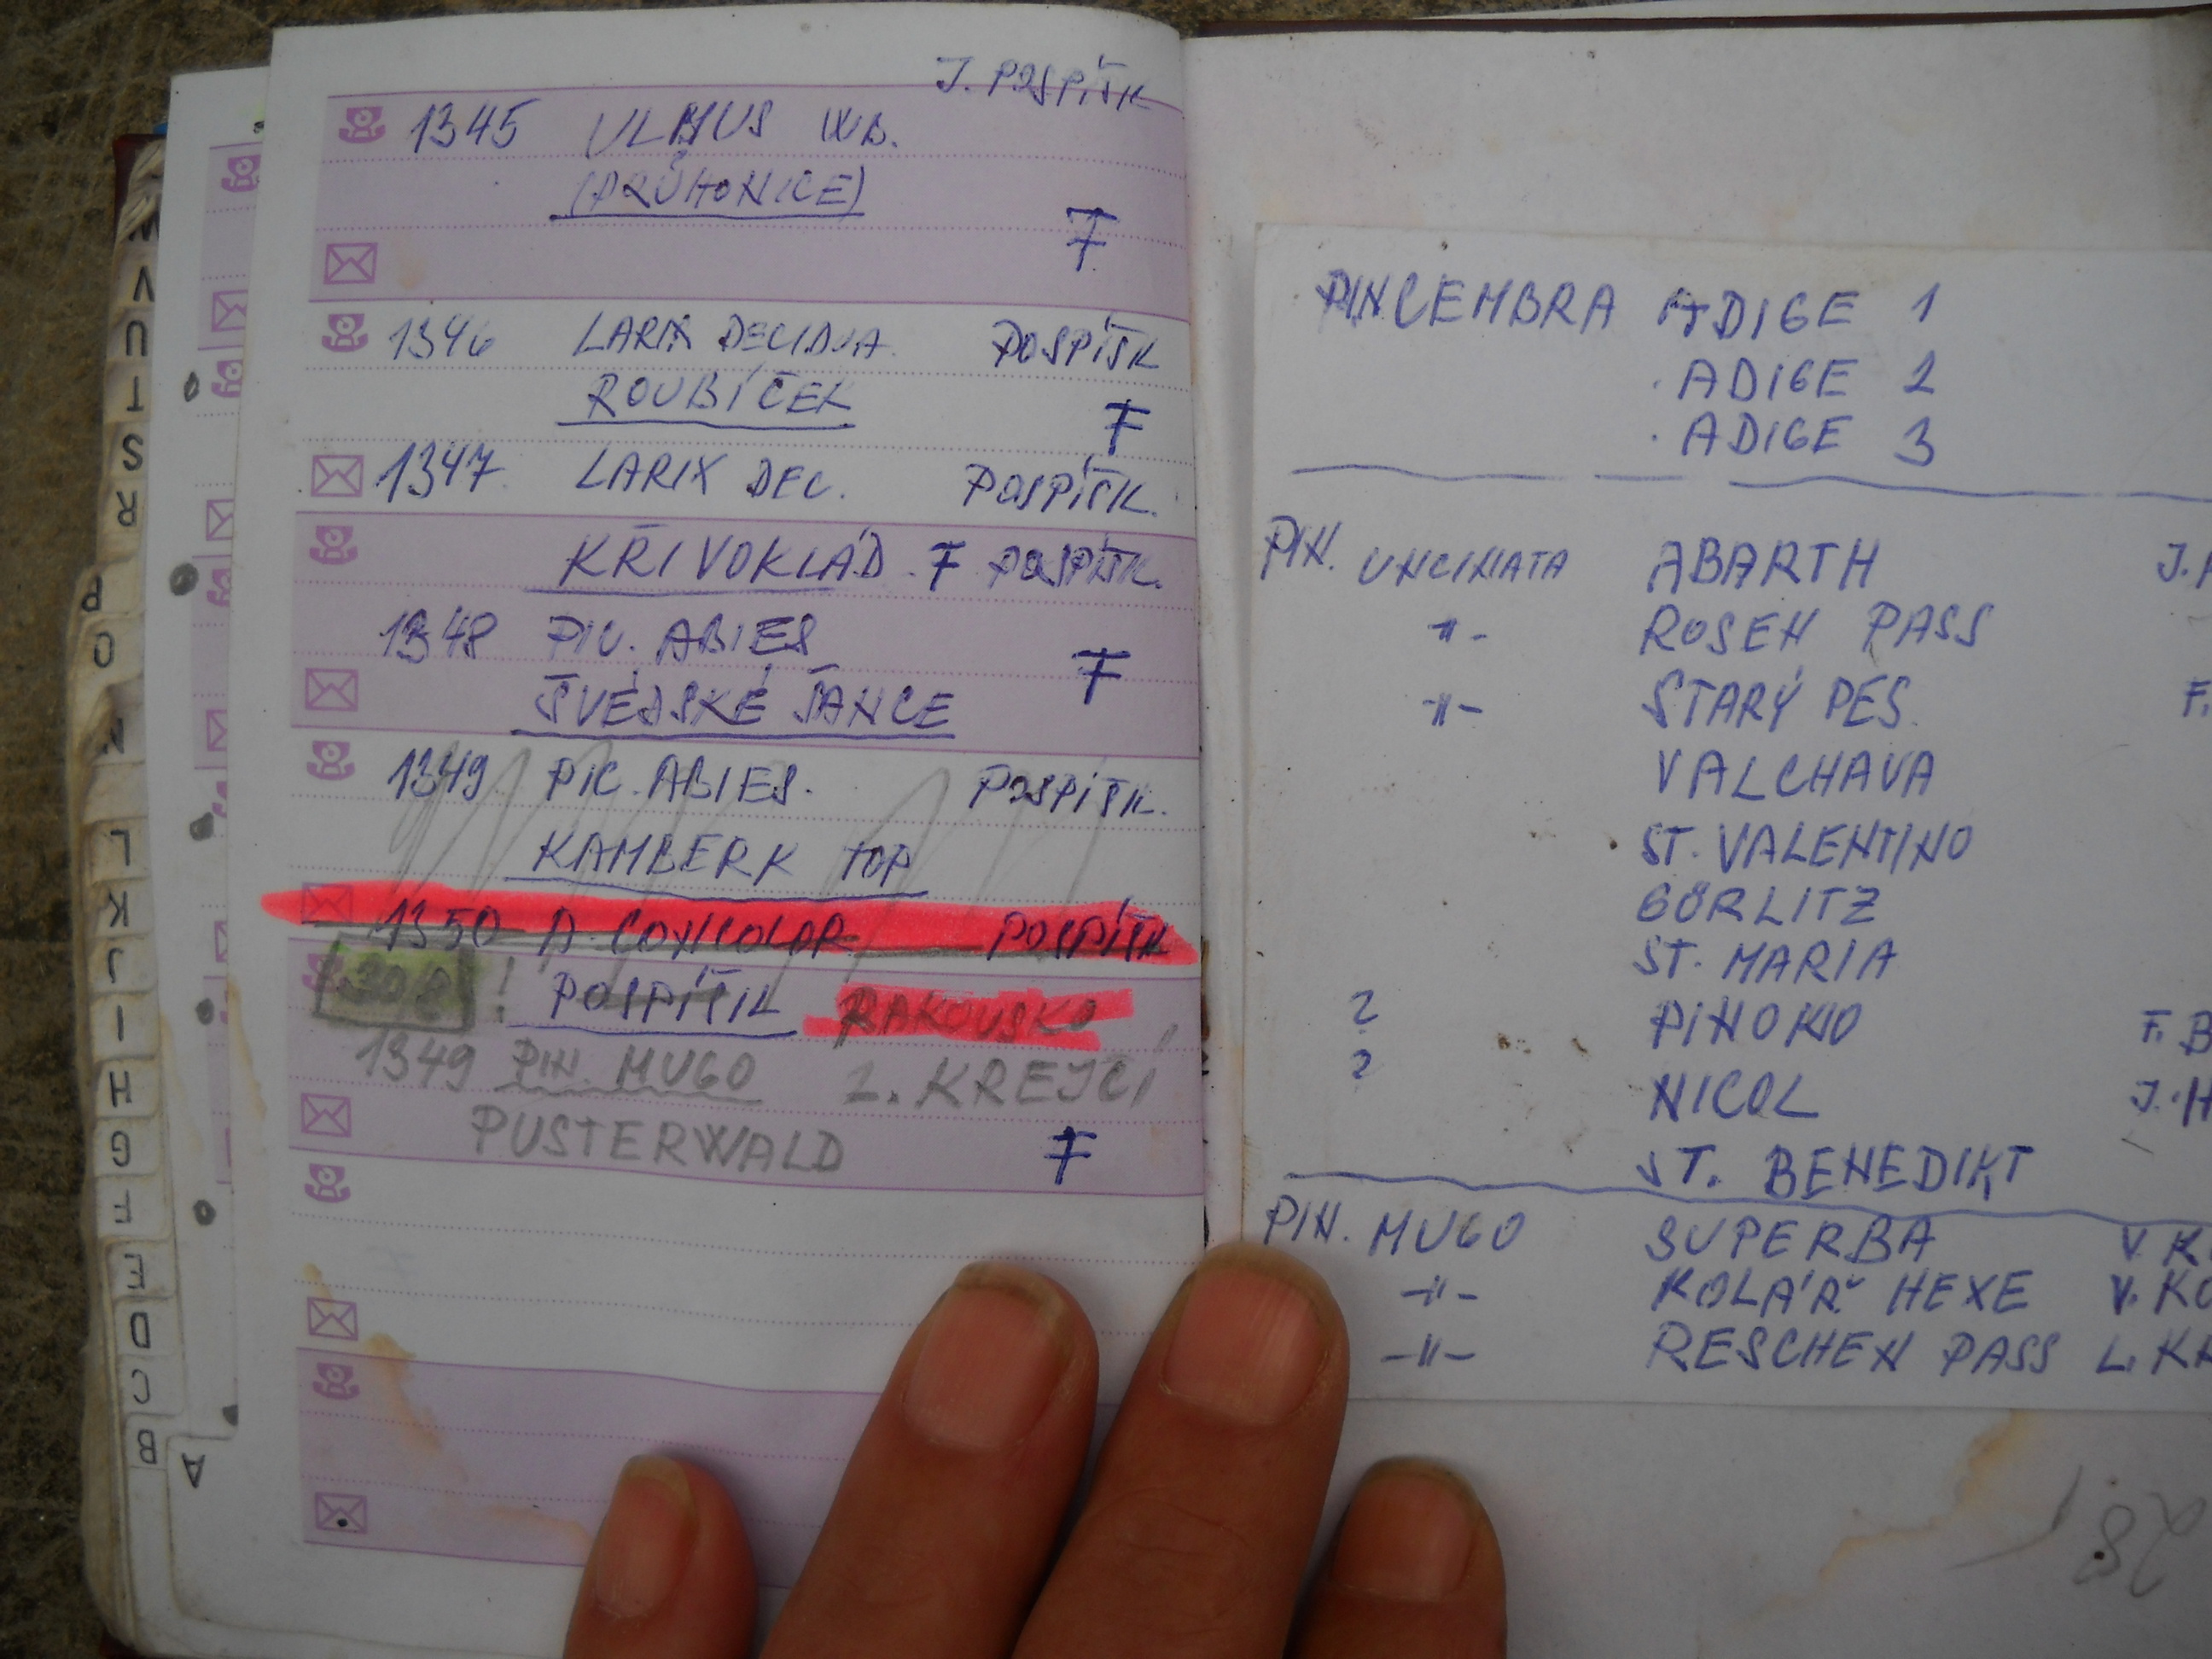 J. POSPÍŠIL
1345 ULMUS WB.
(PRŮHONICE)
F
1346 LARIX DECIDUA. POSPÍŠIL
ROUBÍČEK
F
1347 LARIX DEC. POSPÍŠIL.
KŘIVOKLÁD F POSPÍŠIL.
1348 PIC. ABIES
F
ŠVÉDSKÉ ŠANCE
1349 PIC. ABIES. POSPÍŠIL.
KAMBERK TOP
1350 A. CONCOLOR POSPÍŠIL
308 ! POSPÍŠIL RAKOUSKO
1349 PIN. MUGO L. KREJČÍ
PUSTERWALD F
W
V
U
T
S
R
P
O
N
L
K
J
I
H
G
F
E
D
C
B
A
PIN CEMBRA ADIGE 1
ADIGE 2
ADIGE 3
PIN. UNCINATA ABARTH J.
-"- ROSEN PASS
-"- STARÝ PES. F.
VALCHAVA
ST. VALENTINO
GÖRLITZ
ST. MARIA
? PINOKIO F. B
? NICOL J. H
ST. BENEDIKT
PIN. MUGO SUPERBA V. K
-"- KOLÁŘ HEXE V. KO
-"- RESCHEN PASS L. K